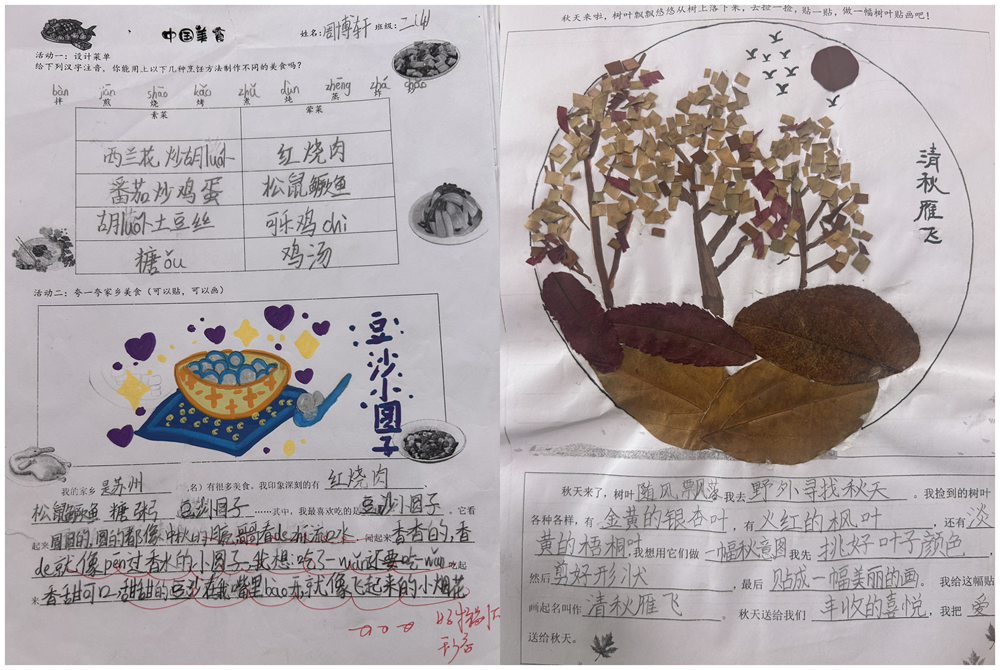 中国美食
姓名:闾博轩 班级:二(4)
活动一:设计菜单
给下列汉字注音,你能用上以下几种烹饪方法制作不同的美食吗?
bàn jiān shāo kǎo zhǔ dùn zhēng zhá chǎo
拌 煎 烧 烤 煮 炖 蒸 炸
素菜 荤菜
西兰花炒胡luó卜 红烧肉
番茄炒鸡蛋 松鼠鳜鱼
胡luó卜土豆丝 可乐鸡chì
糖ǒu 鸡汤
活动二:夸一夸家乡美食(可以贴,可以画)
豆沙小圆子
我的家乡是苏州 名)有很多美食。我印象深刻的有 红烧肉、
松鼠鳜鱼 糖粥 豆沙小圆子……其中,我最喜欢吃的是豆沙小圆子。它看
起来圆圆的,圆的都像中秋的月亮,看de有流口水,闻起来香香的,香
de就像pēn过香水的小圆子。我想:吃了wǎn还要吃一wǎn。吃起
来香甜可口,甜甜的豆沙在我嘴里bào开,就像飞起来的小烟花
秋天来啦,树叶飘飘悠悠从树上落下来,去捡一捡,贴一贴,做一幅树叶贴画吧!
清秋雁飞
秋天来了,树叶随风飘落我去野外寻找秋天。我捡到的树叶
各种各样,有金黄的银杏叶,有火红的枫叶,还有淡
黄的梧桐叶,我想用它们做一幅秋意图我先挑好叶子颜色,
然后剪好形状,最后贴成一幅美丽的画。我给这幅贴
画起名叫作清秋雁飞。秋天送给我们丰收的喜悦,我把爱
送给秋天。